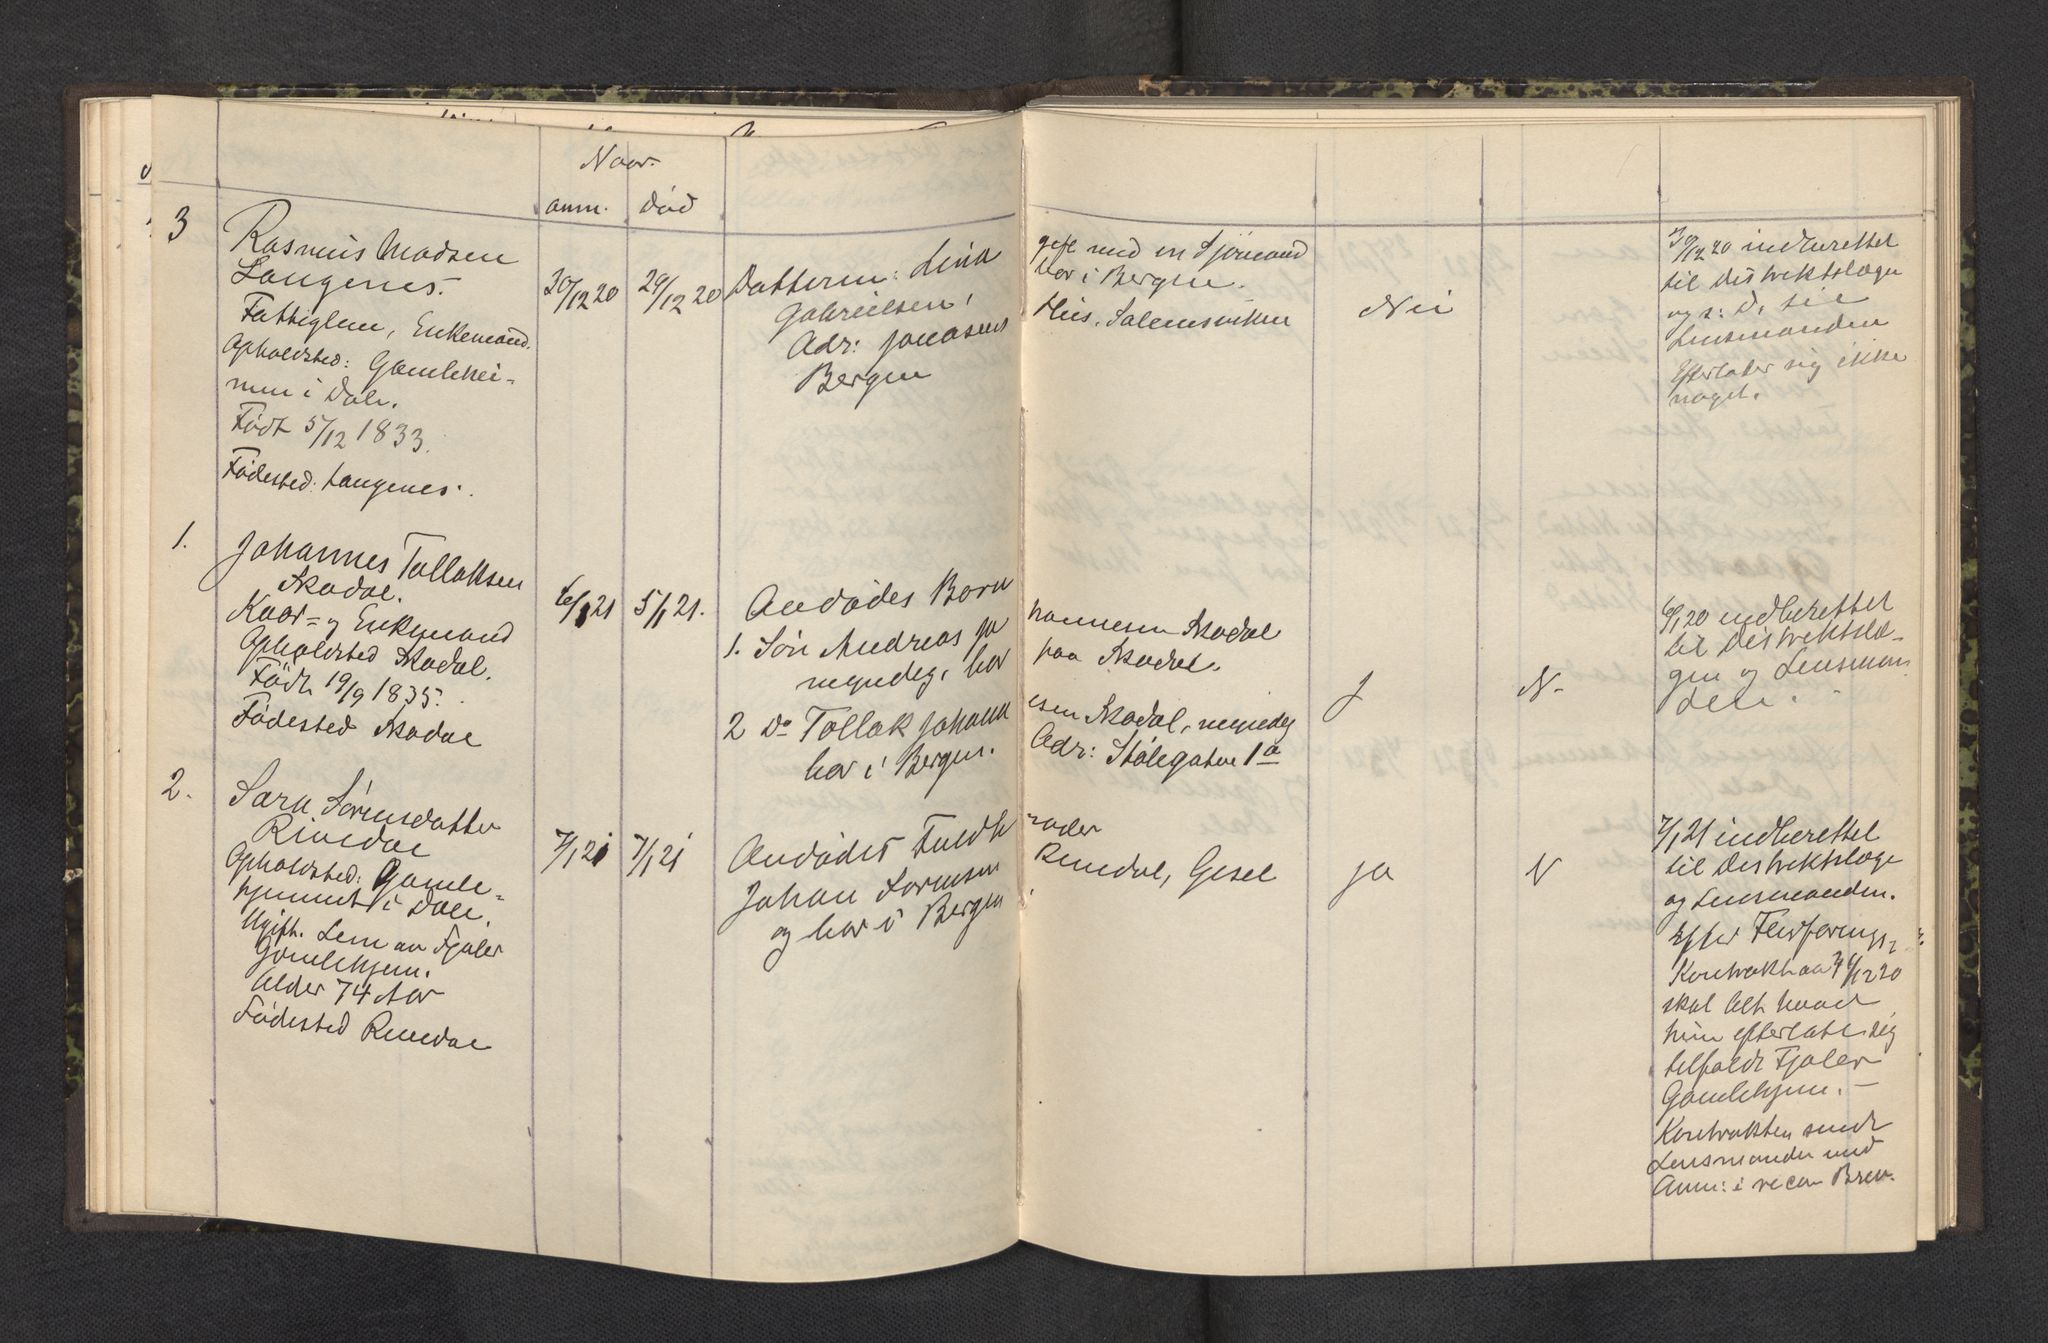 Naar
anm. død
3
Rasmus Madsen
Langenes.
Fattiglem, Enkemand.
Opholdsted: Gamlehei-
men i Dale.
Født 5/12 1833.
Fødested: Langenes.
30/12 20
29/12 20
Datteren: Lina
Gabrielsen,
Adr: Jonasens
Bergen
gift med en Sjömand
bor i Bergen.
Hus, Salemsvikken
Nei
30/12 20 indberettet
til Distriktslægen
og s: D. til
Lensmanden
Efterlater sig ikke
noget.
1.
Johannes Tollaksen
Skadal.
Kaar- og Enkemand
Opholdsted Skadal.
Født 19/9 1835.
Fødested Skadal
6/1 21
5/1 21.
Avdødes Born
1. Søn Andreas Jo
myndig, bor
2 Do Tollak Johann
bor i Bergen.
hannesen Skadal
paa Skadal.
esen Skadal, myndig
Adr: Stølegaten 1a
J
N-
6/1 20 indberettet
til Distriktslæ-
gen og Lensman
den.
2.
Sara Sørensdatter
Rivedal
Opholdsted: Gamle-
hjemmet i Dale.
Ugift. Lem av Fjaler
Gamlehjem.
Alder 74 Aar
Fødested Rivedal
7/1 21
7/1 21
Avdødes Fuldb
Johan Sørensen
og bor i Bergen
røder
Rivedal, Gesel
ja
N
7/1 21 indberettet
til Distriktslæge
og Lensmanden.
Efter Flidførings-
Kontrakt av 4/12 20
skal alt hvad
hun efterlate sig
tilfalde Fjaler
Gamlehjem. —
Kontrakten sendt
Lensmanden med
Anm: i recom Brev.